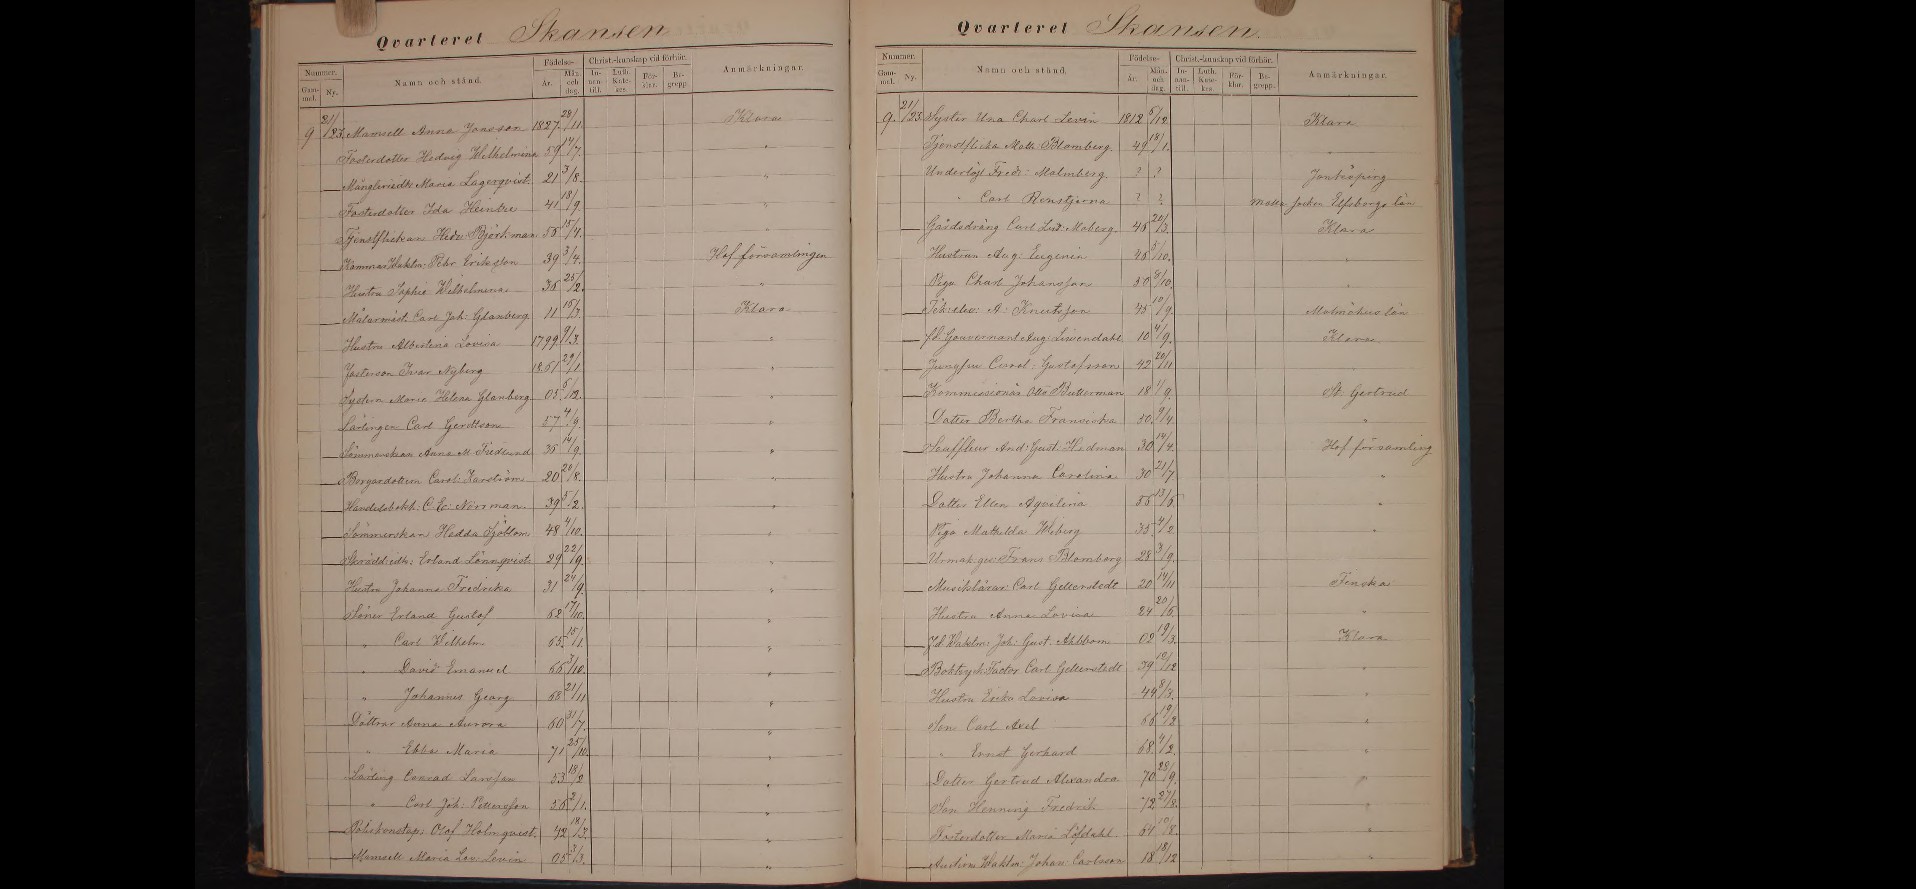 Qvarteret Skansen
Nummer. Namn och stånd. Födelse- Christ.-kunskap vid förhör. Anmärkningar.
Gam- mal. Ny. År. Mån. och dag. In- nan- till. Luth. Kate- kes. För- klar. Be- grepp.
9 21/23. Mamsell Anna Jonsson 1827. 28/11. Klara
Fosterdotter Hedvig Wilhelmina 59 14/7. "
Månglerieidk Maria Lagerqvist. 21 3/8. "
Fosterdotter Ida Heintze 41 18/9. "
Tjenstflickan Hedv. Björkman 55 15/4. "
Kammar Vaktm: Pehr Eriksson 39 3/4. Hof församlingen
Hustru Sophie Wilhelmina 35 25/2. "
Målarmäst. Carl Joh: Glanberg 11 15/3. Klara
Hustru Albertina Lovisa 1799. 9/3. "
Fosterson Ivar Nyberg 1861 29/1. "
Systern Maria Helena Glanberg 05. 6/12. "
Lärlingen Carl Gerdtson 57 4/9. "
Sömmerskan Anna M. Fredlund 35 14/9. "
Borgardottern Carol: 20 20/8. "
Handelsbokh: C. E: Norrman. 39 5/2. "
Sömmerskan Hedda Sjöblom 48 4/10. "
Skräddeidk: Erland Lönnqvist. 29 22/9. "
Hustru Johanna Fredrika 31 24/9. "
Söner Erland Gustaf 62 17/10. "
" Carl Wilhelm 65. 15/1. "
" David Emanuel 66 3/10. "
" Johannes Georg 68 21/11 "
Döttrar Anna Aurora 60 31/7. "
" Ebba Maria 71 25/10. "
Lärling Conrad Larsson 53 18/2 "
" Carl Joh: Pettersson 56 2/1. "
Poliskonstap: Olof Holmqvist. 42 18/3. "
Mamsell Maria Lov. Levin 05 3/3. "
Qvarteret Skansen.
Nummer. Namn och stånd. Födelse- Christ.-kunskap vid förhör. Anmärkningar.
Gam- mal. Ny. År. Mån. och dag. In- nan- till. Luth. Kate- kes. För- klar. Be- grepp.
9. 21/23. Syster Una Charl Levin 1812 5/12. Klara
Tjenstflicka Matt: Blomberg. 49 18/1. "
Underlöjt Fredr: Malmberg ? ? Jönköping
" Carl Renstjerna ? ? Socken Elfsborgs län
Gårdsdräng Carl Lud: Moberg. 45 20/3. Klara
Hustrun Aug: Eugenia 45 5/10. "
Piga Charl Johansson 50 8/10. "
A: Knutsson 45 10/9. Malmöhus län
f.d. Gouvernant Aug: Liwendahl 10 4/9. Klara
Jungfru Carol: Gustafsson 42 20/11 "
Kommissionär Otto Butterman 18 1/9. St. Gertrud
Dotter Bertha Fransiska 50. 9/4. "
And: Gust: Hedman 30 14/4. Hof församling
Hustru Johanna Carolina 30 21/7. "
Dotter Ellen Aqvelina 55 13/5 "
Piga Mathilda Wiberg 35. 4/2. "
Urmak.ges: Frans Blomberg 28 3/9. "
Musiklärar: Carl Gellerstedt 20 14/11 Finska
Hustru Anna Lovisa 24 20/5. "
f.d. Vaktm: Joh: Gust: Ahlbom 02 19/3. Klara
Boktryck: Factor Carl Gellerstedt 39 12/12 "
Hustru Erika Lovisa 44 8/3. "
Son Carl Axel 66 19/2 "
" Ernst Gerhard 68. 4/2. "
Dotter Gertrud Alexandra 70 28/9. "
Son Henning Fredrik 72. 27/8. "
Fosterdotter Maria Löfdahl 64 10/8. "
Auctions Vaktm: Johan Carlsson 18 18/12 "